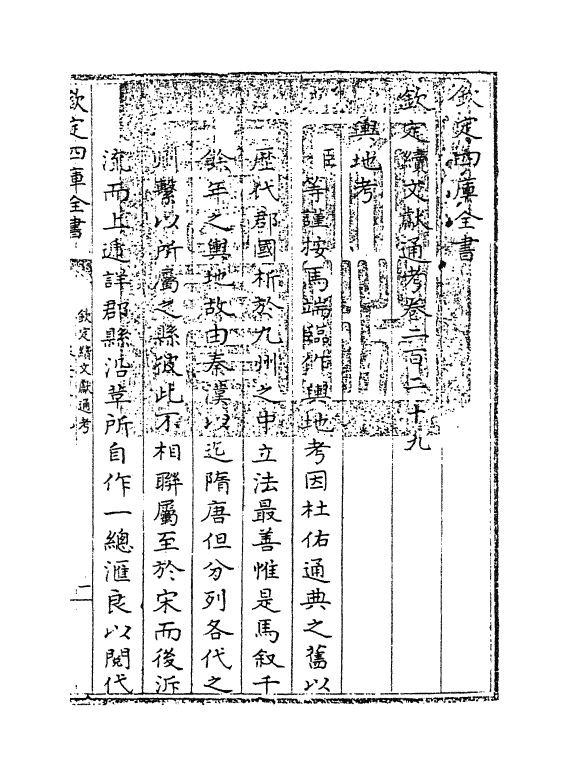 欽定四庫全書
欽定續文獻通考卷二百二十九
輿地考
臣等謹按馬端臨作輿地考因杜佑通典之舊以
歷代郡國析於九州之中立法最善惟是馬叙千
餘年之輿地故由秦漢以迄隋唐但分列各代之
則繫以所屬之縣彼此不相聯屬至於宋而後泝
流而上遞詳郡縣沿革所自作一總滙良以閱代
欽定四庫全書
欽定續文獻通考
一